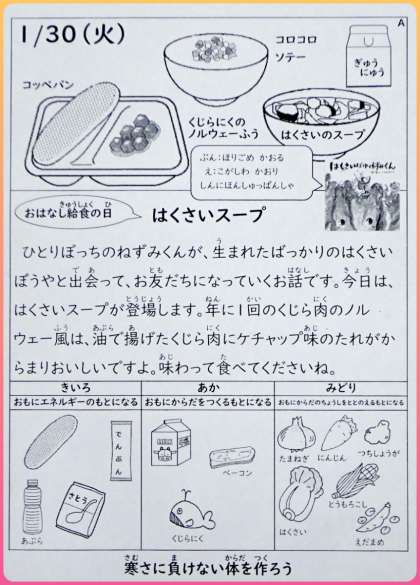 A
1/30(火)
コロコロ
ソテー
ぎゅう
にゅう
コッペパン
くじらにくの
ノルウェーふう
はくさいのスープ
ぶん:ほりごめ かおる
え:こがしわ かおり
しんにほんしゅっぱんしゃ
きゅうしょく ひ
おはなし給食の日
はくさいスープ
ひとりぼっちのねずみくんが、生まれたばっかりのはくさい
ぼうやと出会って、お友だちになっていくお話です。今日は、
はくさいスープが登場します。年に1回のくじら肉のノル
ウェー風は、油で揚げたくじら肉にケチャップ味のたれがか
らまりおいしいですよ。味わって食べてくださいね。
きいろ
おもにエネルギーのもとになる
あか
おもにからだをつくるもとになる
みどり
おもにからだのちょうしをととのえるもとになる
でんぷん
さとう
あぶら
ベーコン
くじらにく
たまねぎ
にんじん
つちしょうが
はくさい
とうもろこし
えだまめ
さむ ま からだ つく
寒さに負けない体を作ろう